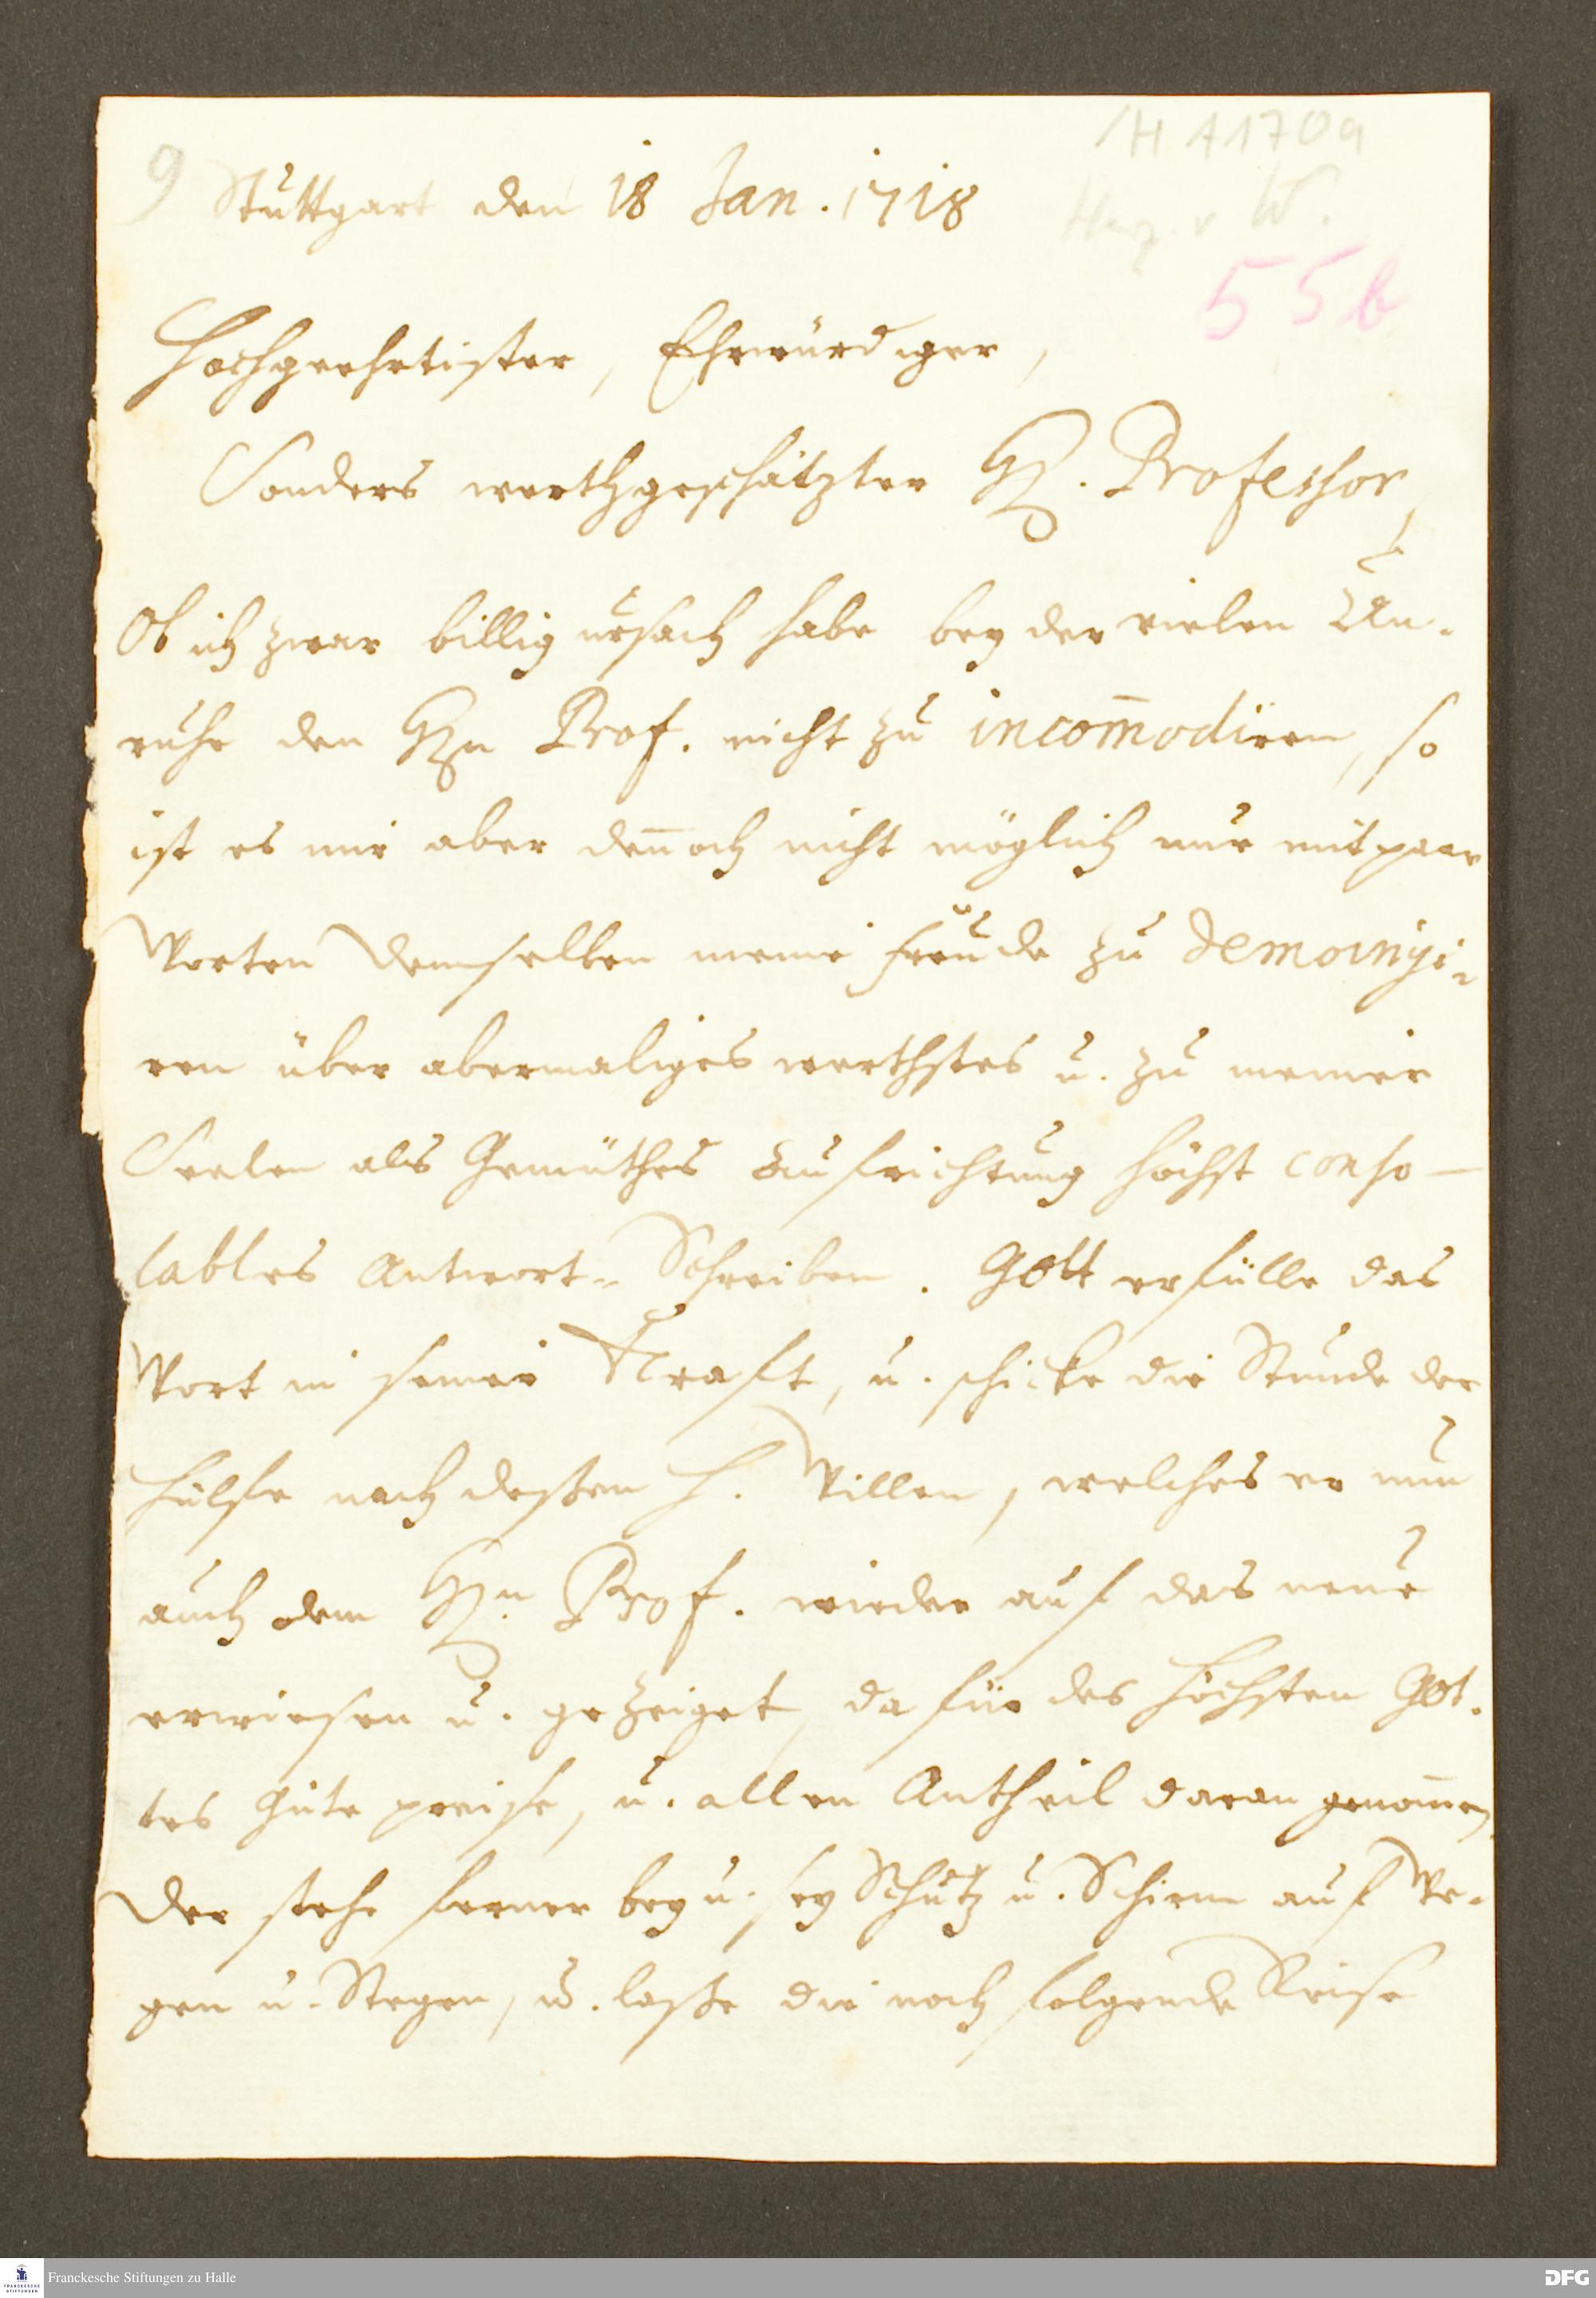 9 Stuttgart den 18 Jan. 1718
/H A170a
Herz. v W.
55b
Hochgeehrtister, Ehrwürdiger,
Sonders werthgeschätzter H. Professor,
Ob ich zwar billig ursach habe bey der vielen Un-
ruhe den Hn Prof. nicht zu incom̄odiren, so
ist es mir aber den̄och nicht möglich nur mit paar
Worten demselben meine freude zu
ren über abermaliges werthstes u. zu meiner
Seelen als Gemüthes Aufrichtung höchst conso-
lables Antwort- Schreiben. Gott erfülle das
Wort in seiner Krafft, u. schicke die Stunde der
Hülfe nach deßen H. Willen, welches er nun
auch dem Hn. Prof. wieder auf das neue
erwiesen u. gezeiget, dafür des Höchsten Got-
tes Güte preise, u. allen Antheil daran genom̄en,
Der stehe ferner bey u. sey Schutz u. Schirm auf We-
gen u. Stegen, u. laße die noch folgende Reise
Franckesche Stiftungen zu Halle
DFG